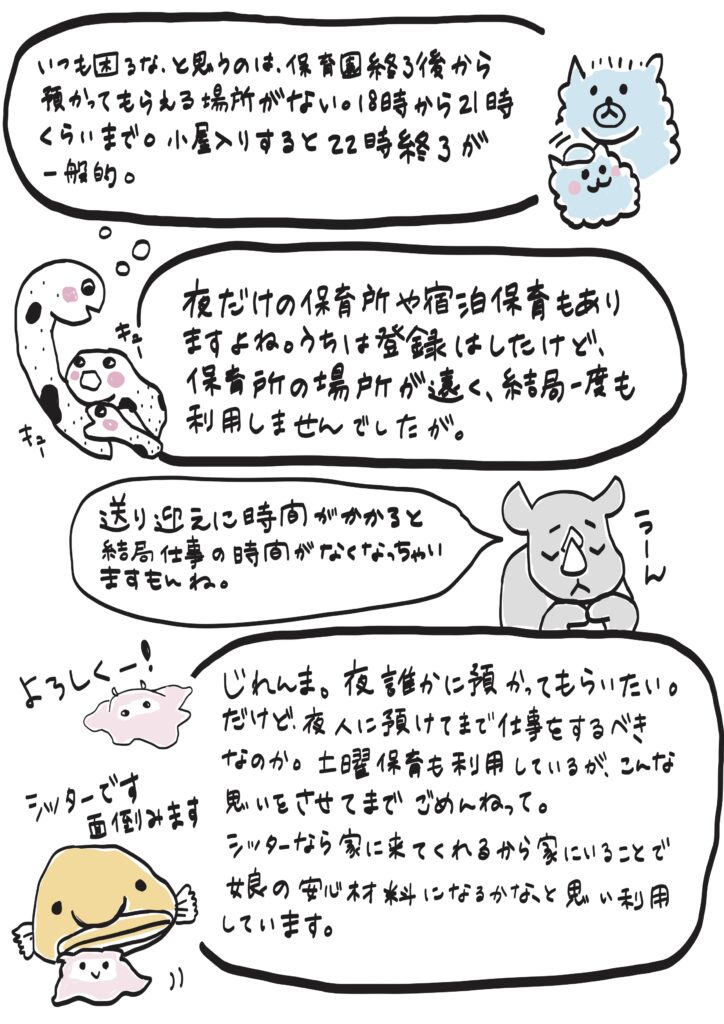 いつも困るな、と思うのは、保育園終了後から
預かってもらえる場所がない。18時から21時
くらいまで。小屋入りすると22時終了が
一般的。
夜だけの保育所や宿泊保育もあり
ますよね。うちは登録はしたけど、
保育所の場所が遠く、結局一度も
利用しませんでしたが。
キュー
キュー
送り迎えに時間がかかると
結局仕事の時間がなくなっちゃい
ますもんね。
うーん
よろしくー!
じれんま。夜誰かに預かってもらいたい。
だけど、夜人に預けてまで仕事をするべき
なのか。土曜保育も利用しているが、こんな
思いをさせてまでごめんねって。
シッターなら家に来てくれるから家にいることで
娘の安心材料になるかな、と思い利用
しています。
シッターです
面倒みます